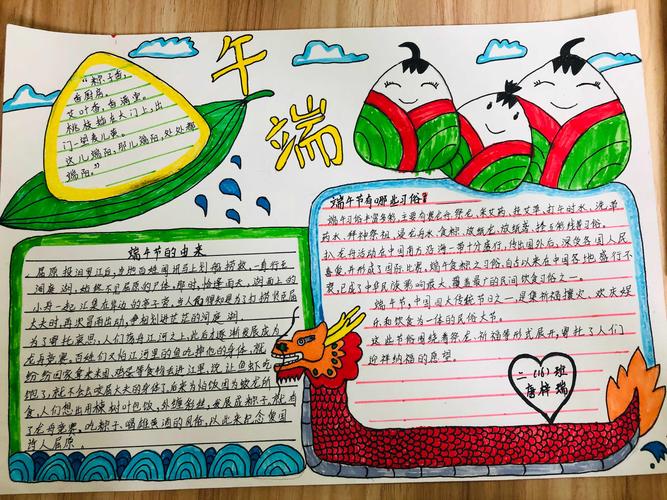 "粽子香,
香厨房,
艾叶香,香满堂。
桃枝插在大门上,出
门一望麦儿黄。
这儿端阳,那儿端阳,处处都
端阳。"
端午
端午节的由来
屈原投汨罗江后,当地百姓闻讯马上划船捞救,一直行至
洞庭湖,始终不见屈原的尸体,那时,恰逢雨天,湖面上的
小舟一起汇集在岸边的亭子旁,当人们得知是为了打捞贤臣屈
大夫时,再次冒雨出动,争相划进茫茫的洞庭湖
为了寄托哀思,人们荡舟江河之上,此后才逐渐发展成为
龙舟竞赛,百姓们又怕江河里的鱼吃掉他的身体,就
纷纷回家拿来米团、鸡蛋等食物丢进江里,说让鱼虾吃
饱了,就不会去咬屈大夫的身体了,后来为怕饭团为蛟龙所
食,人们想出用楝树叶包饭,外缠彩丝,发展成粽子,就有
了龙舟竞赛、吃粽子、喝雄黄酒的风俗,以此来纪念爱国
诗人屈原。
端午节有哪些习俗
端午习俗丰富多彩,主要有
药水、拜神祭祖、浸龙舟水、食粽、放纸龙、放纸鸢、拴五色丝线等习俗。
扒龙舟活动在中国南方沿海一带十分盛行,传出国外后,深受各国人民
喜爱并形成了国际比赛,端午食粽之习俗,自古以来在中国各地盛行不
衰,已成了中华民族影响最大、覆盖最广的民间饮食习俗之一。
端午节,中国四大传统节日之一,是集祈福攘灾、欢庆娱
乐和饮食为一体的民俗大节。
这些节俗围绕着祭龙、祈福等形式展开,寄托了人们
迎祥纳福的愿望
二(16)班
唐梓瑞